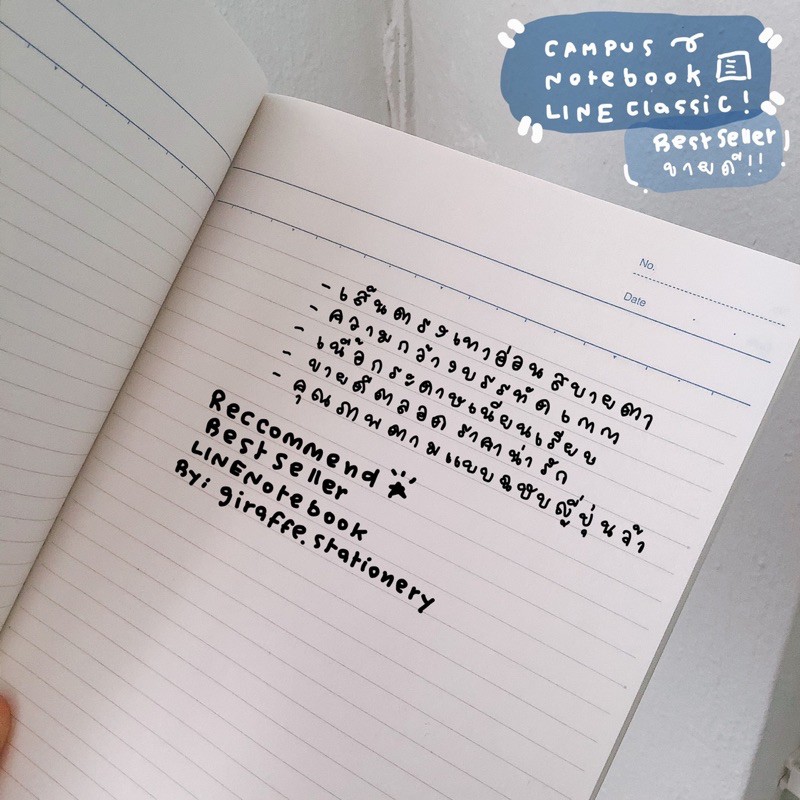 CAMPUS
Notebook
LINE Classic!
Best Seller!
ขายดี!!
No.
Date
- เส้นตรงเทาอ่อนสบายตา
- ความกว้างบรรทัด 7 มม
- เนื้อกระดาษเนียนเรียบ
- ขายดีตลอด ราคาน่ารัก
- คุณภาพตามแบบฉบับญี่ปุ่นจ้า
Reccommend
Best Seller
LINE Notebook
By: giraffe.stationery